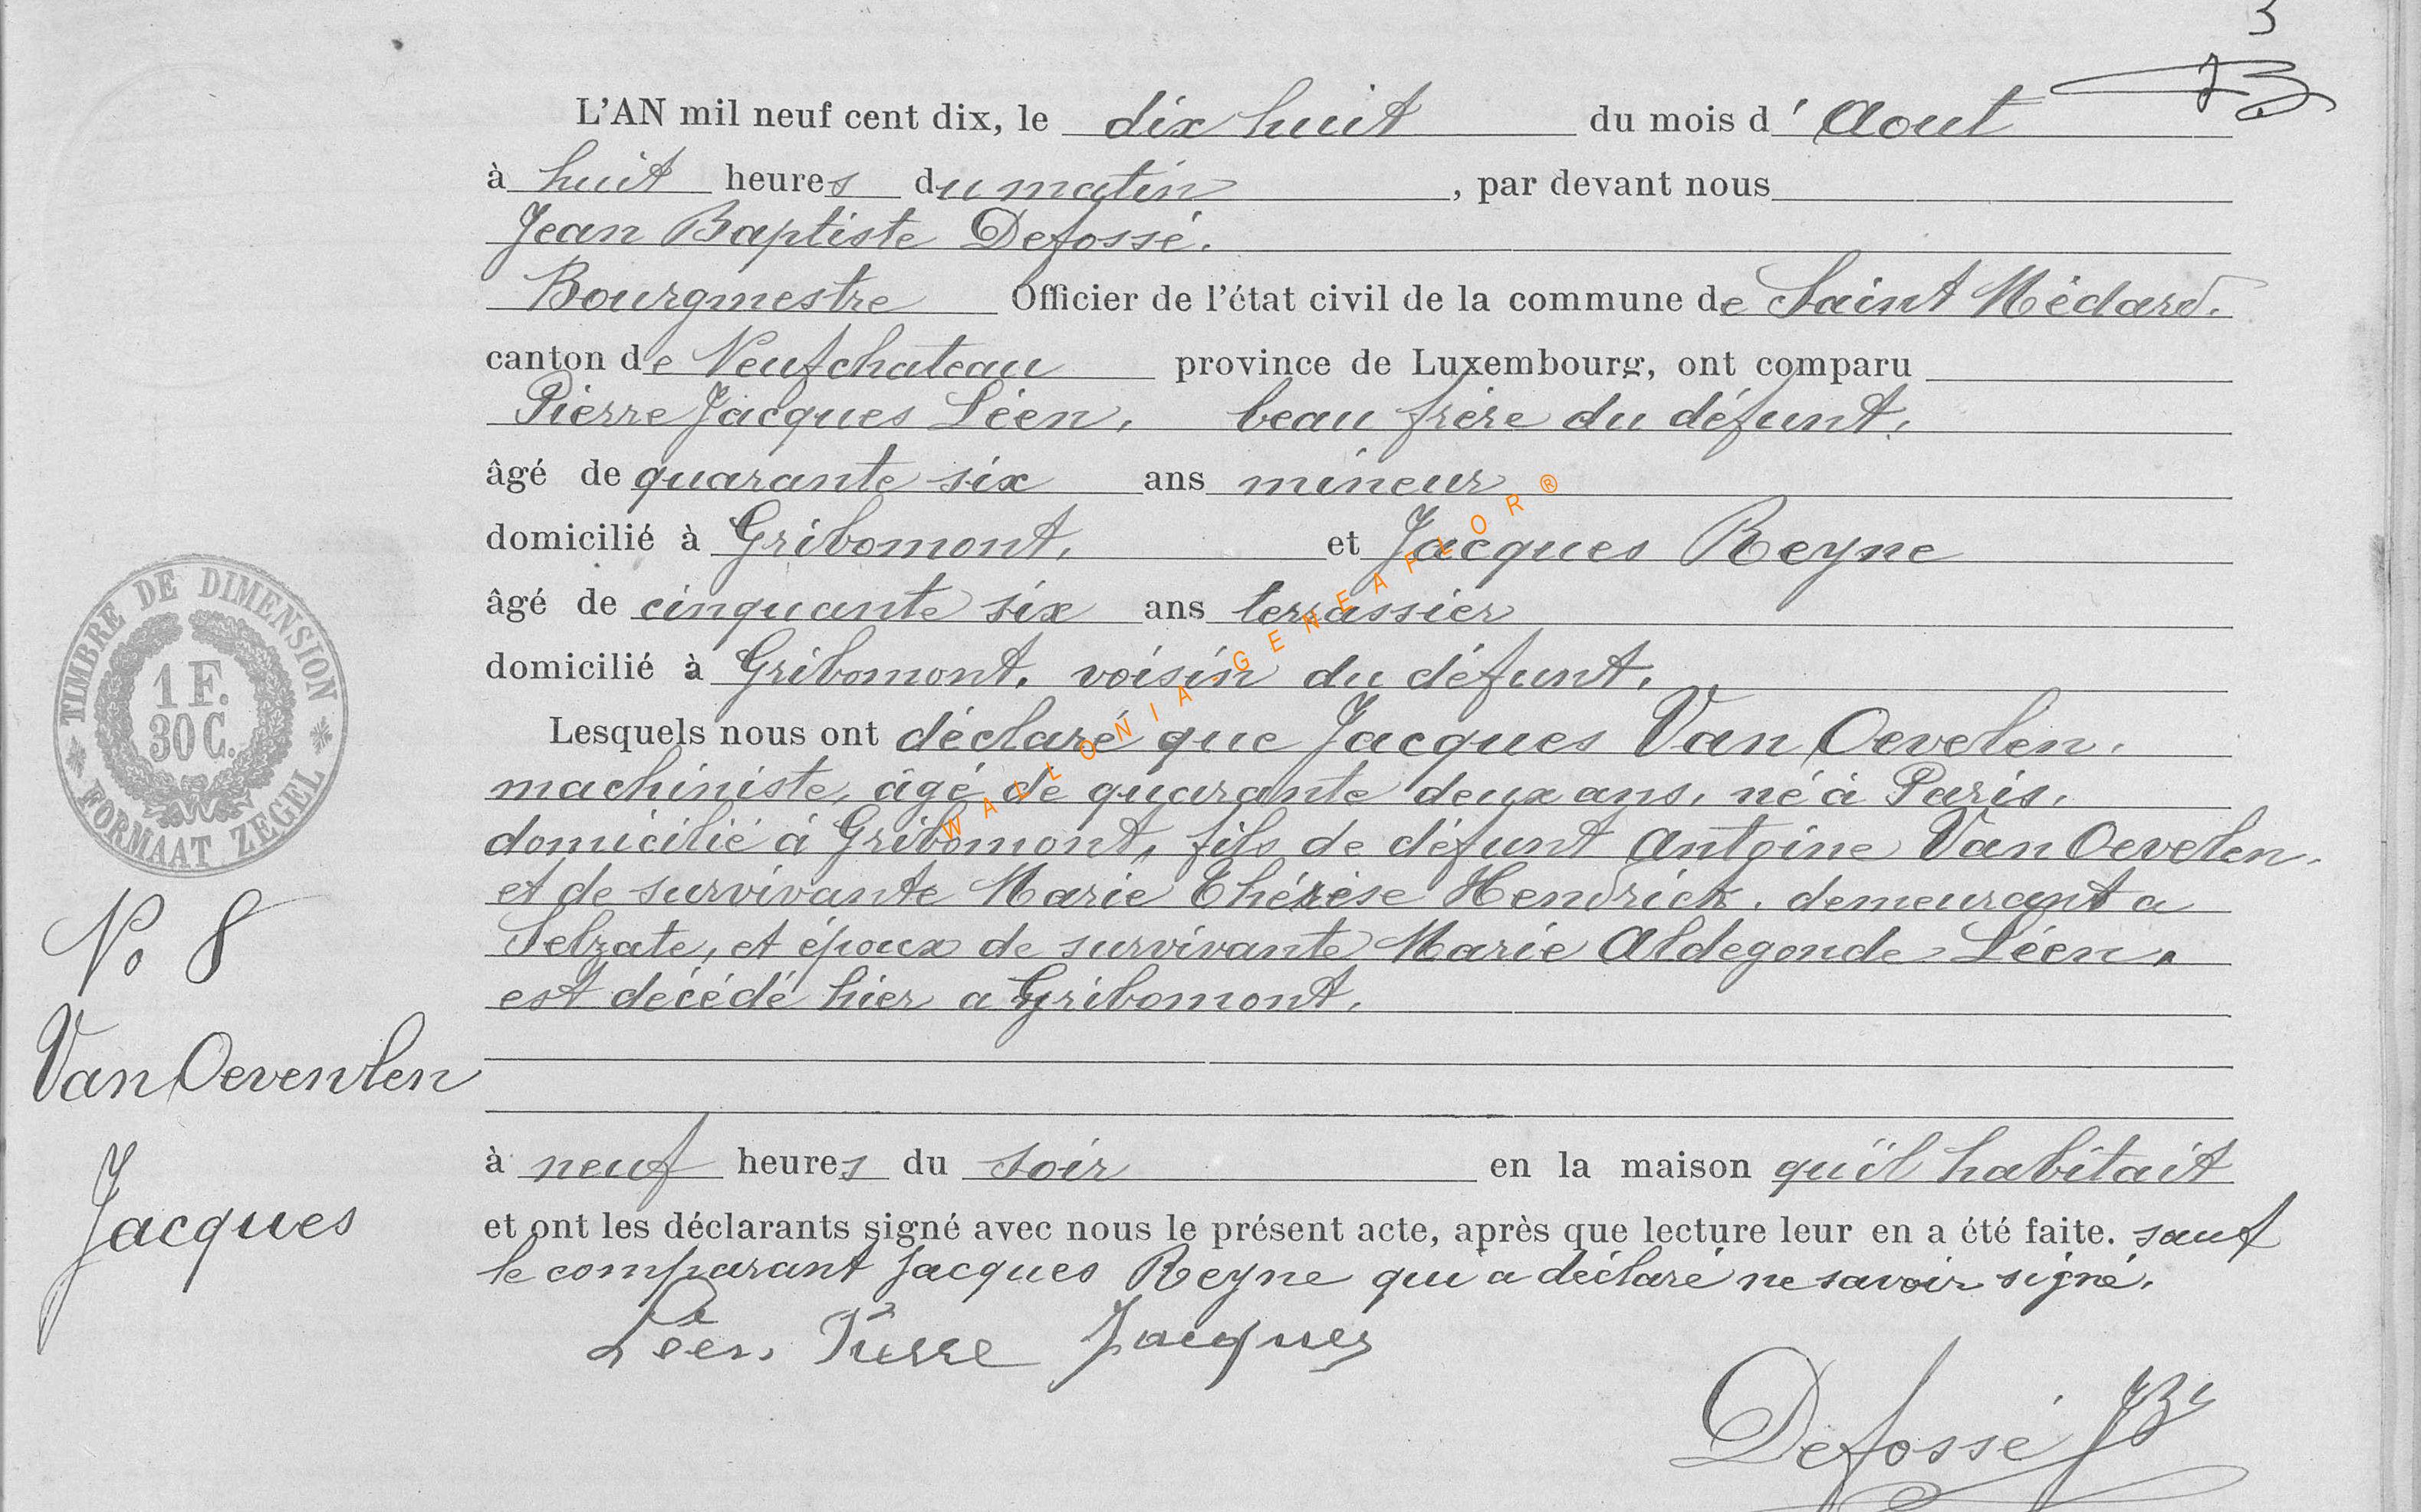 3
JB
L'AN mil neuf cent dix, le dix huit du mois d'Aout
à huit heures du matin, par devant nous
Jean Baptiste Defossé.
Bourgmestre Officier de l'état civil de la commune de Saint Médard.
canton de Neufchateau province de Luxembourg, ont comparu
Pierre Jacques Léen, beau frère du défunt,
âgé de quarante six ans mineur
domicilié à Gribomont, et Jacques Reyne
âgé de cinquante six ans terrassier
domicilié à Gribomont, voisin du défunt.
Lesquels nous ont déclaré que Jacques Van Oevelen,
machiniste, âgé de quarante deux ans, né à Paris,
domicilié à Gribomont, fils de défunt Antoine Van Oevelen.
et de survivante Marie Thérèse Hendrick, demeurant a
Selzate, et époux de survivante Marie Aldegonde Léen.
est décédé hier a Gribomont.
à neuf heures du soir en la maison qu'il habitait
et ont les déclarants signé avec nous le présent acte, après que lecture leur en a été faite. sauf
le comparant Jacques Reyne qui a déclaré ne savoir signé.
Léen Pierre Jacques
Defossé JB
TIMBRE DE DIMENSION
1 F.
30 C.
FORMAAT ZEGEL
No 8
Van Oevenlen
Jacques
WALLONIA-GENEAFLOR®